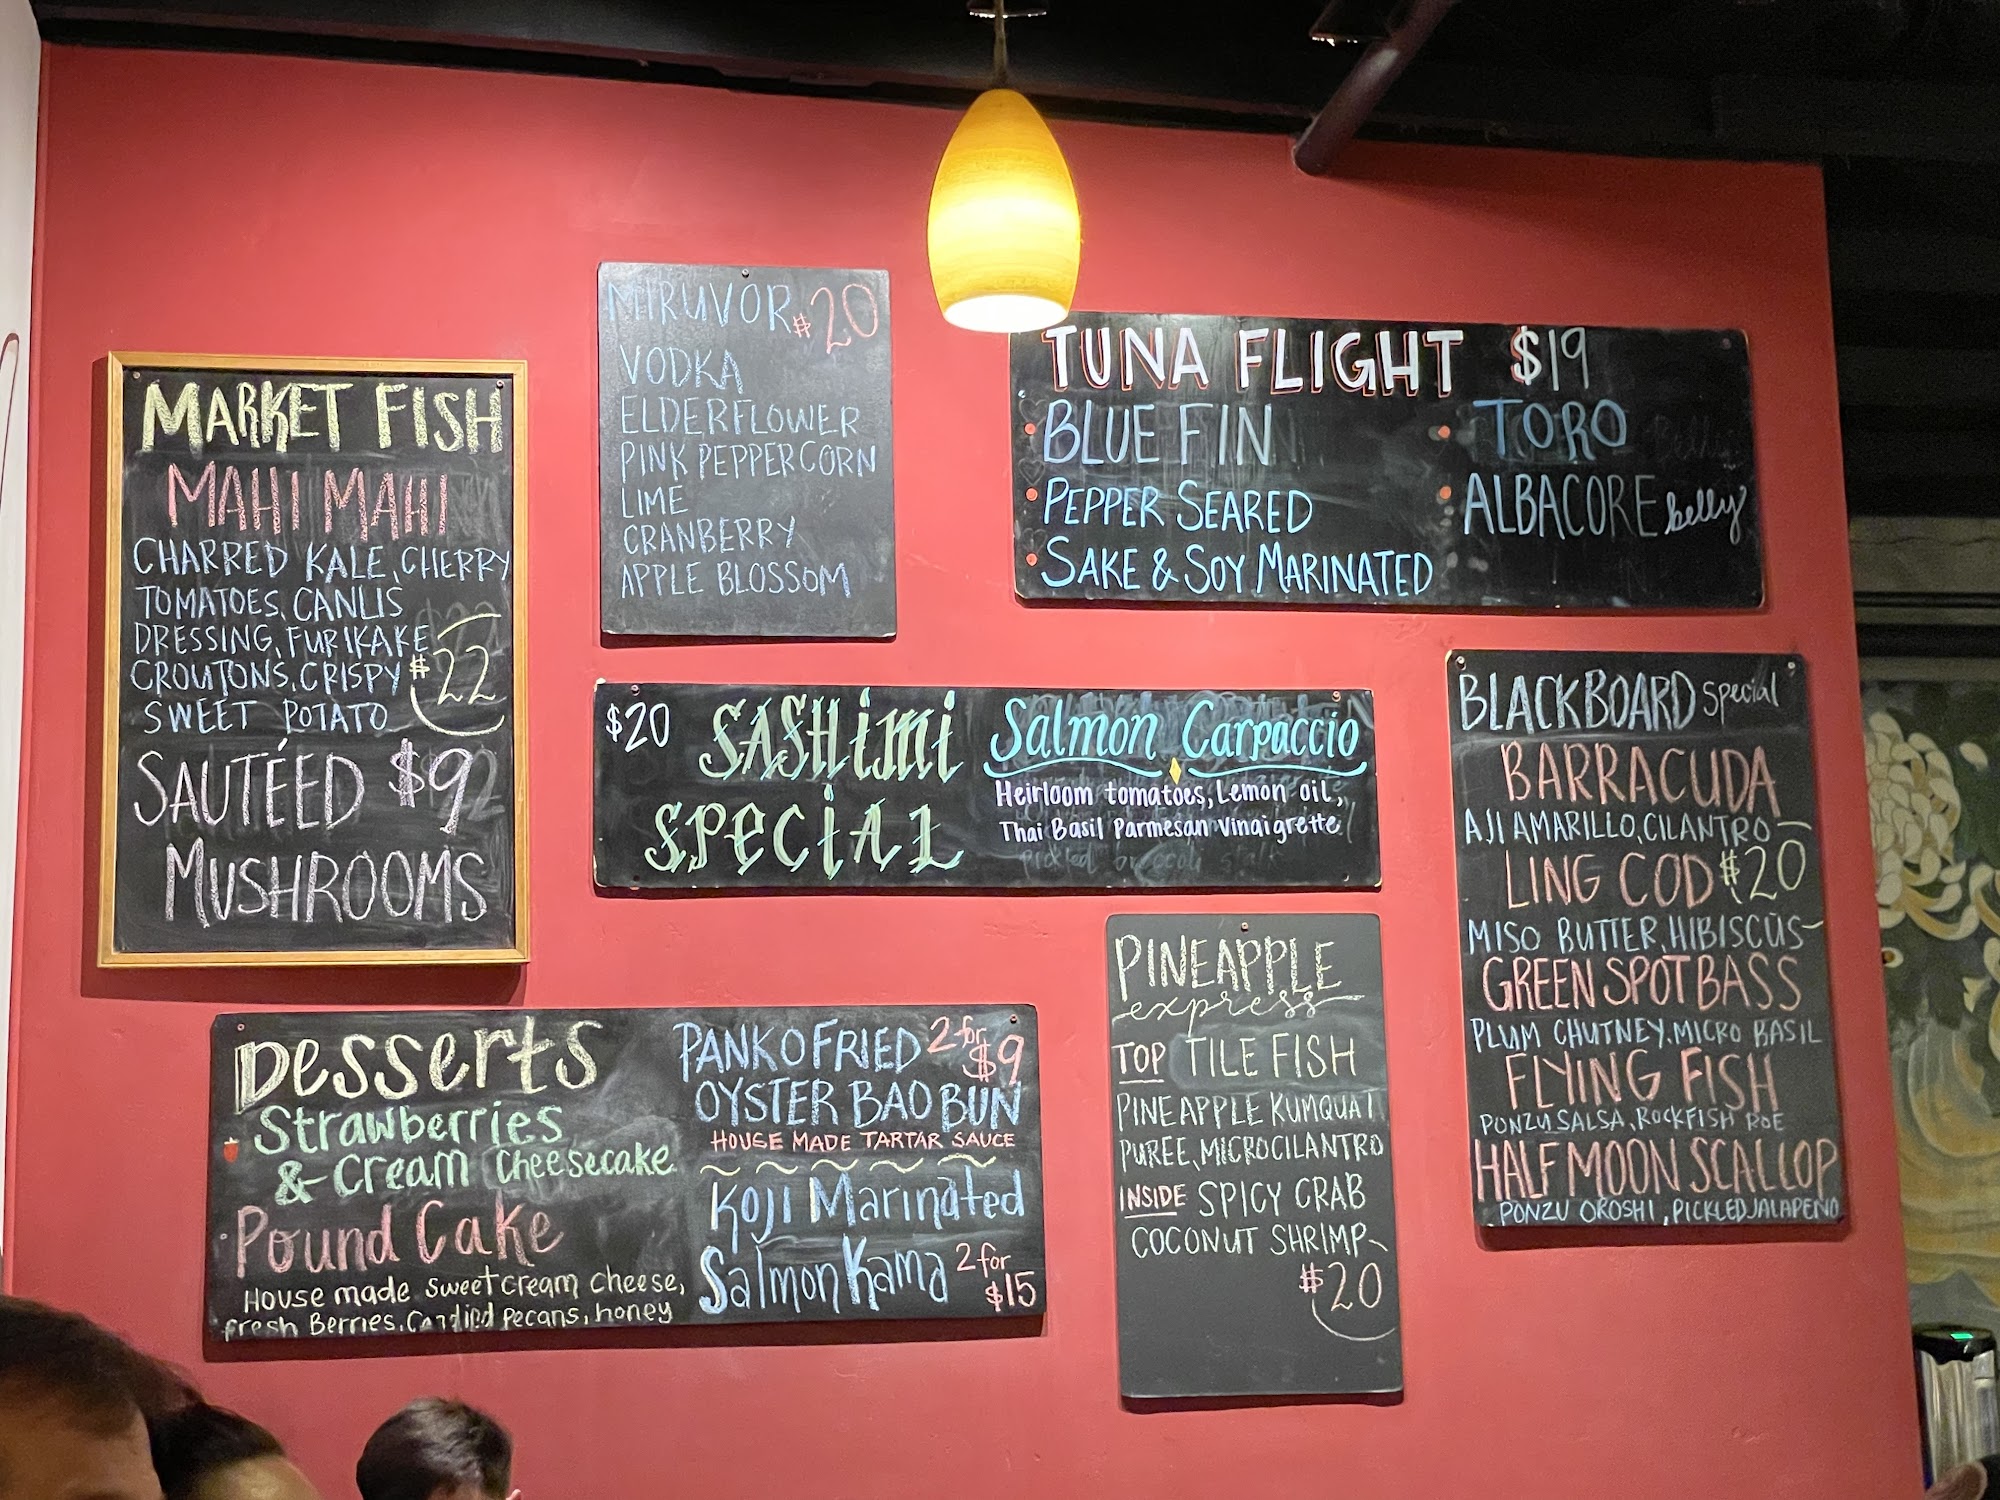 MARKET FISH
MAHI MAHI
CHARRED KALE, CHERRY
TOMATOES, CANLIS
DRESSING, FURIKAKE
CROUTONS, CRISPY $22
SWEET POTATO
SAUTÉED $9
MUSHROOMS
MIRUVOR $20
VODKA
ELDERFLOWER
PINK PEPPERCORN
LIME
CRANBERRY
APPLE BLOSSOM
TUNA FLIGHT $19
BLUE FIN
PEPPER SEARED
SAKE & SOY MARINATED
TORO
ALBACORE belly
$20 SASHIMI
SPECIAL
Salmon Carpaccio
Heirloom tomatoes, Lemon oil,
Thai Basil Parmesan Vinaigrette
BLACKBOARD Special
BARRACUDA
AJI AMARILLO, CILANTRO
LING COD $20
MISO BUTTER, HIBISCUS
GREEN SPOT BASS
PLUM CHUTNEY, MICRO BASIL
FLYING FISH
PONZU SALSA, ROCKFISH ROE
HALF MOON SCALLOP
PONZU OROSHI, PICKLED JALAPENO
Desserts
Strawberries
& Cream Cheesecake
Pound Cake
House made sweet cream cheese,
fresh Berries, Candied Pecans, honey
PANKO FRIED 2 for $9
OYSTER BAO BUN
HOUSE MADE TARTAR SAUCE
Koji Marinated
Salmon Kama 2 for $15
PINEAPPLE
express
TOP TILE FISH
PINEAPPLE KUMQUAT
PUREE, MICROCILANTRO
INSIDE SPICY CRAB
COCONUT SHRIMP
$20